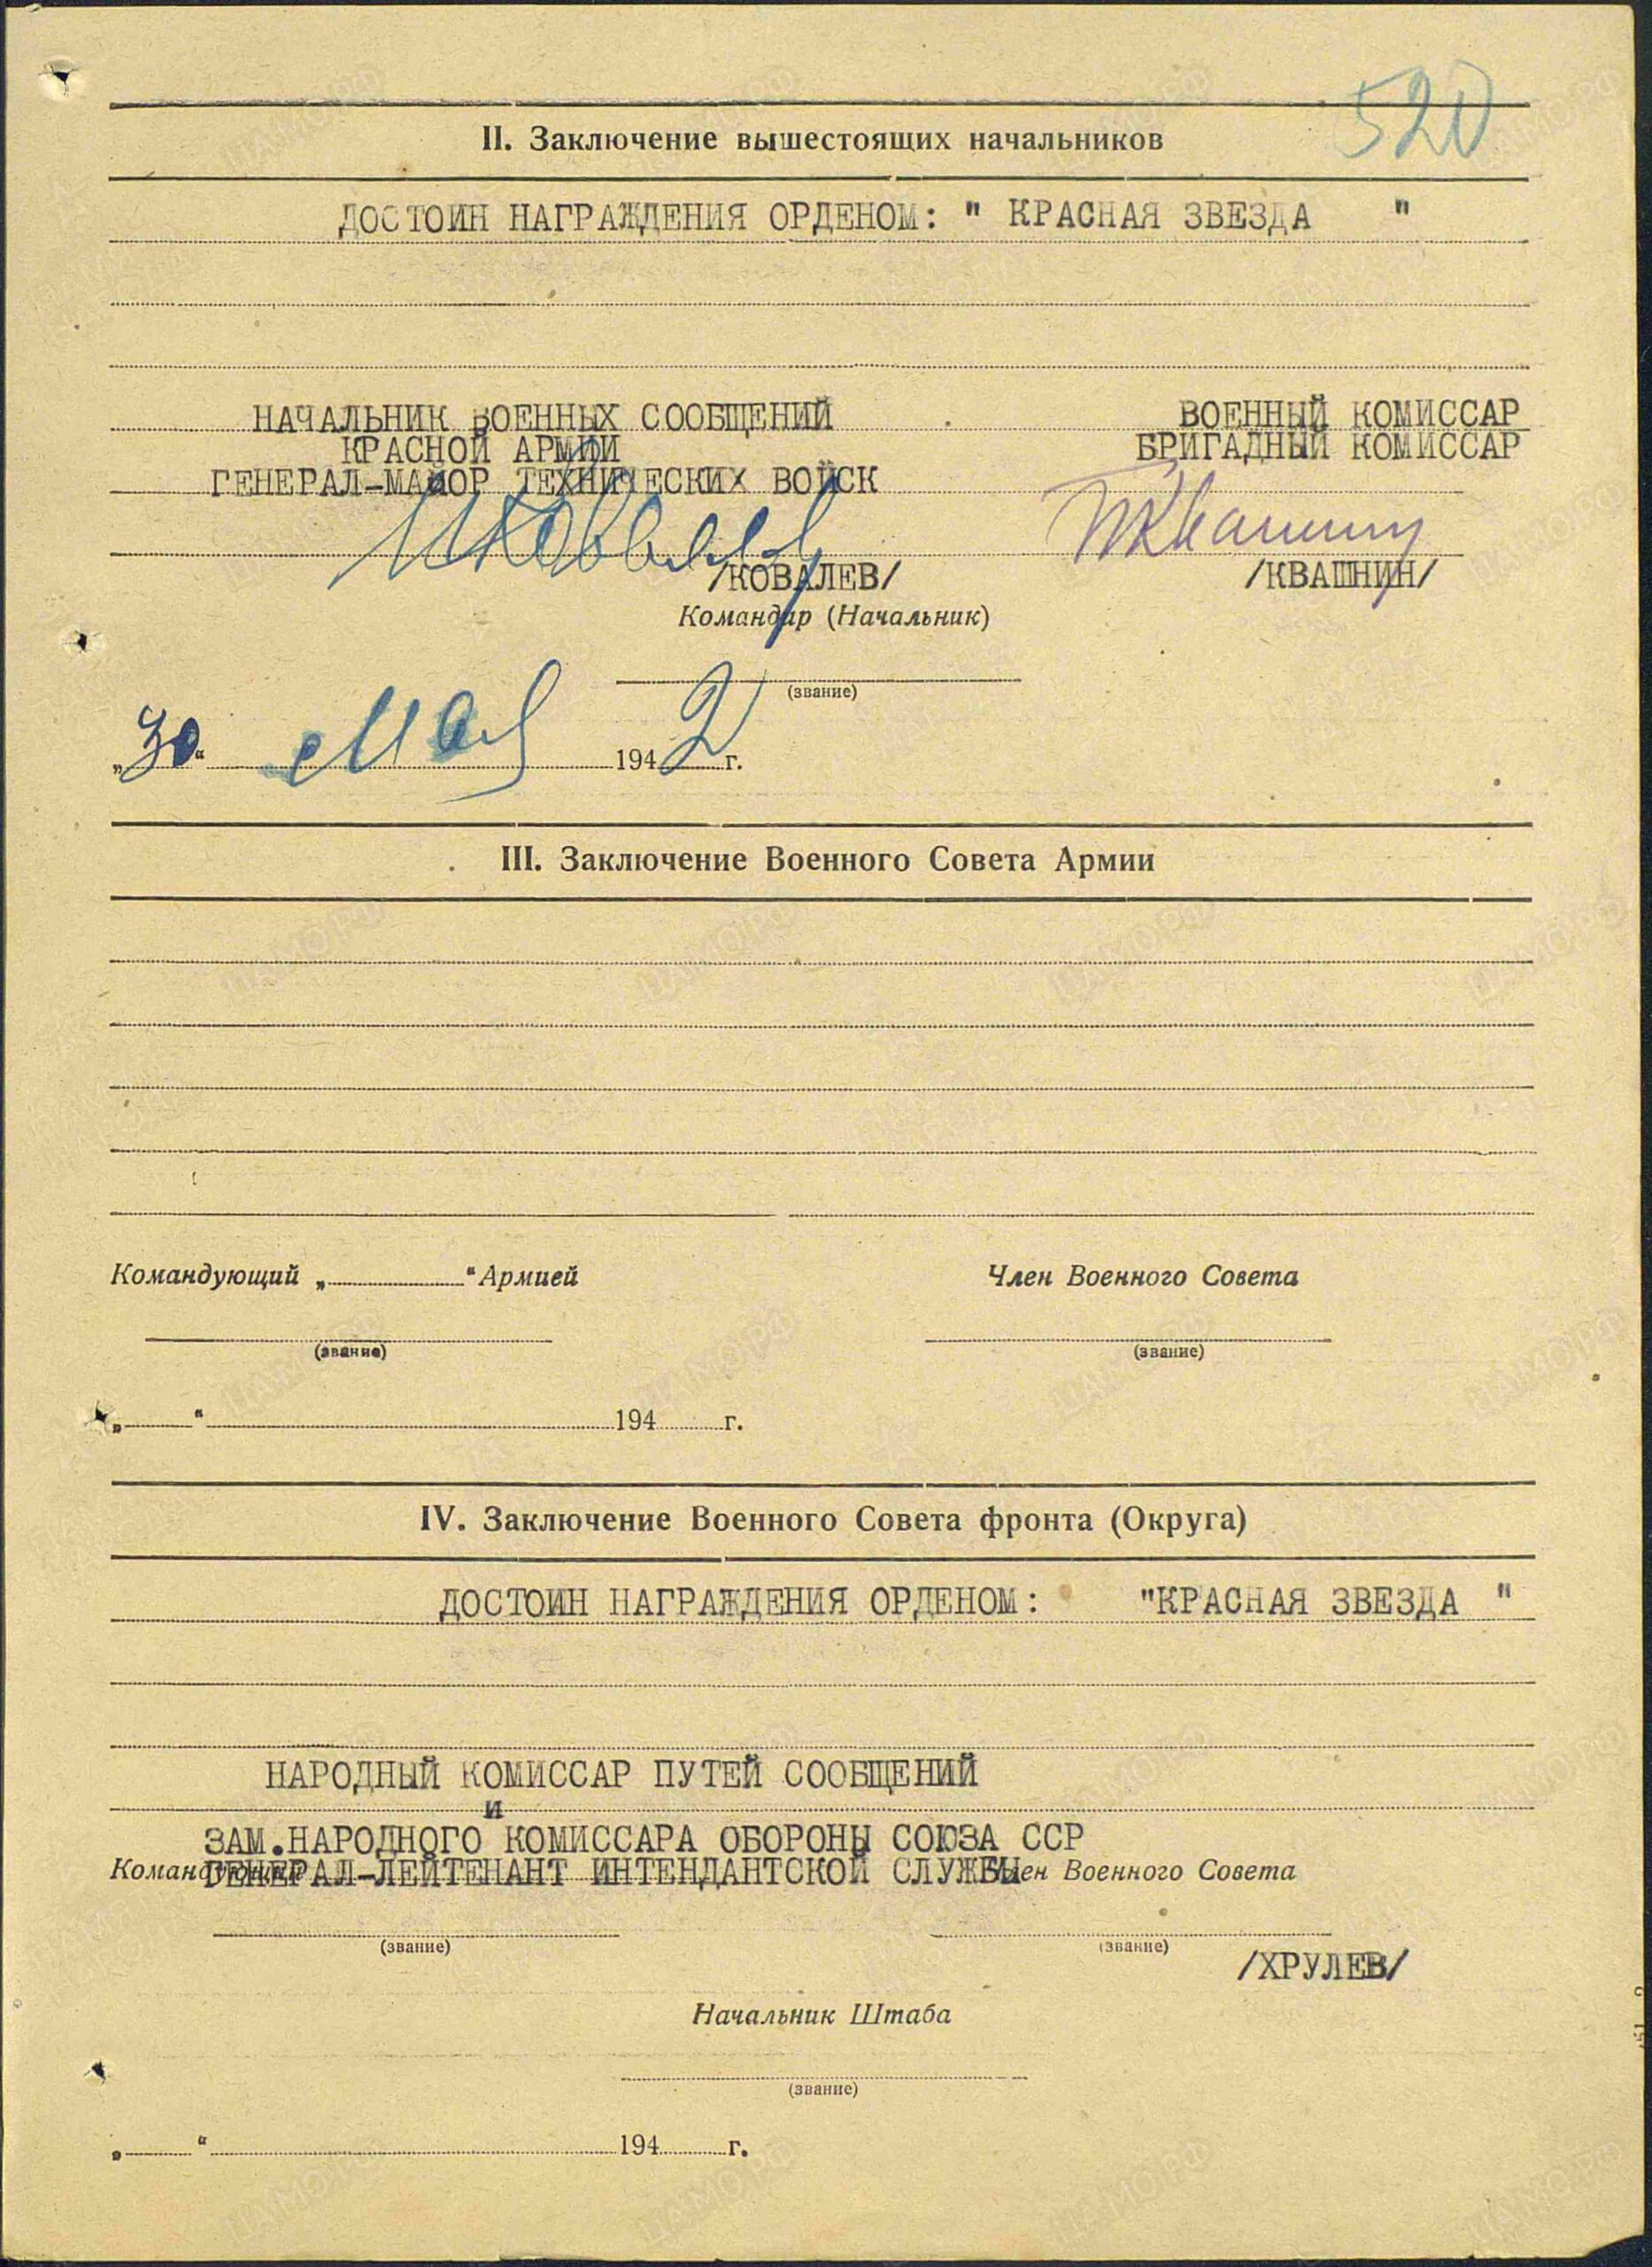 520
II. Заключение вышестоящих начальников
ДОСТОИН НАГРАЖДЕНИЯ ОРДЕНОМ: " КРАСНАЯ ЗВЕЗДА "
НАЧАЛЬНИК ВОЕННЫХ СООБЩЕНИЙ
КРАСНОЙ АРМИИ
ГЕНЕРАЛ-МАЙОР ТЕХНИЧЕСКИХ ВОЙСК
ВОЕННЫЙ КОМИССАР
БРИГАДНЫЙ КОМИССАР
/КОВАЛЕВ/
/КВАШНИН/
Командир (Начальник)
(звание)
„30“ Мая 1942 г.
III. Заключение Военного Совета Армии
Командующий „ “ Армией
Член Военного Совета
(звание)
(звание)
„ “ 194 г.
IV. Заключение Военного Совета фронта (Округа)
ДОСТОИН НАГРАЖДЕНИЯ ОРДЕНОМ: "КРАСНАЯ ЗВЕЗДА "
НАРОДНЫЙ КОМИССАР ПУТЕЙ СООБЩЕНИЙ
и
ЗАМ.НАРОДНОГО КОМИССАРА ОБОРОНЫ СОЮЗА ССР
Командующий
ГЕНЕРАЛ-ЛЕЙТЕНАНТ ИНТЕНДАНТСКОЙ СЛУЖБЫ
Член Военного Совета
(звание)
(звание)
/ХРУЛЕВ/
Начальник Штаба
(звание)
„ “ 194 г.
ЦАМО.РФ